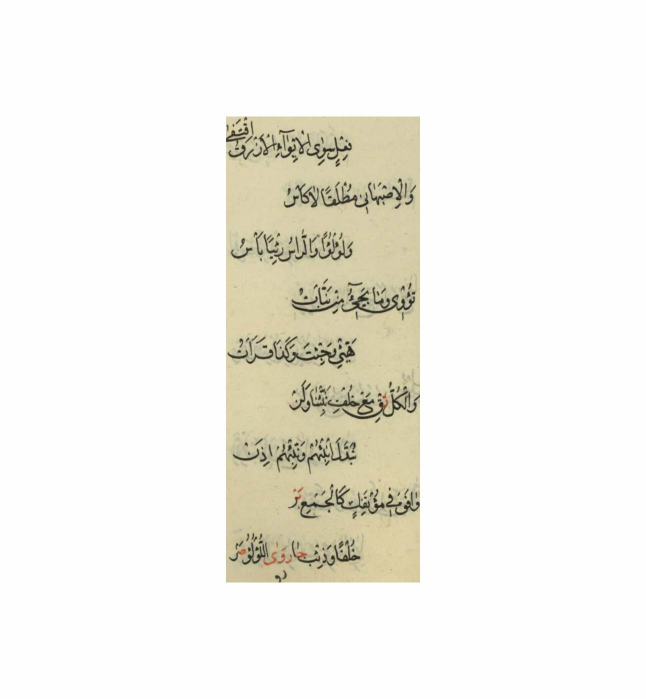 فِعْلٍ سِوَى الْاِيْوَاءِ الْاَزْرَقُ اقْتَفَى
وَالْاِصْبَهَانِى مُطْلَقًا لَاكَاسْ
وَلُؤْلُؤًا وَالرَّاسُ رِئْيًا بَاسْ
تُؤْوِى وَمَا يَجِئُ مِنْ نَبَّاتْ
هَيِّئْ وَجِئْتَ وَكَذَا قَرَاتْ
وَالْكُلُّ ثِقْ مَعْ خُلْفِ نَبِّئْنَا وَلَنْ
يُبْدَلَ اَنْبِئْهُمْ وَنَبِّئْهُمْ اِذَنْ
وَافَقَ فِي مُؤْتَفِكٍ كَالْجَمْعِ بَرْ
خُلْفًا وَذِئْبُ جَا رَوَى اللُّؤْلُؤُ صَرْ